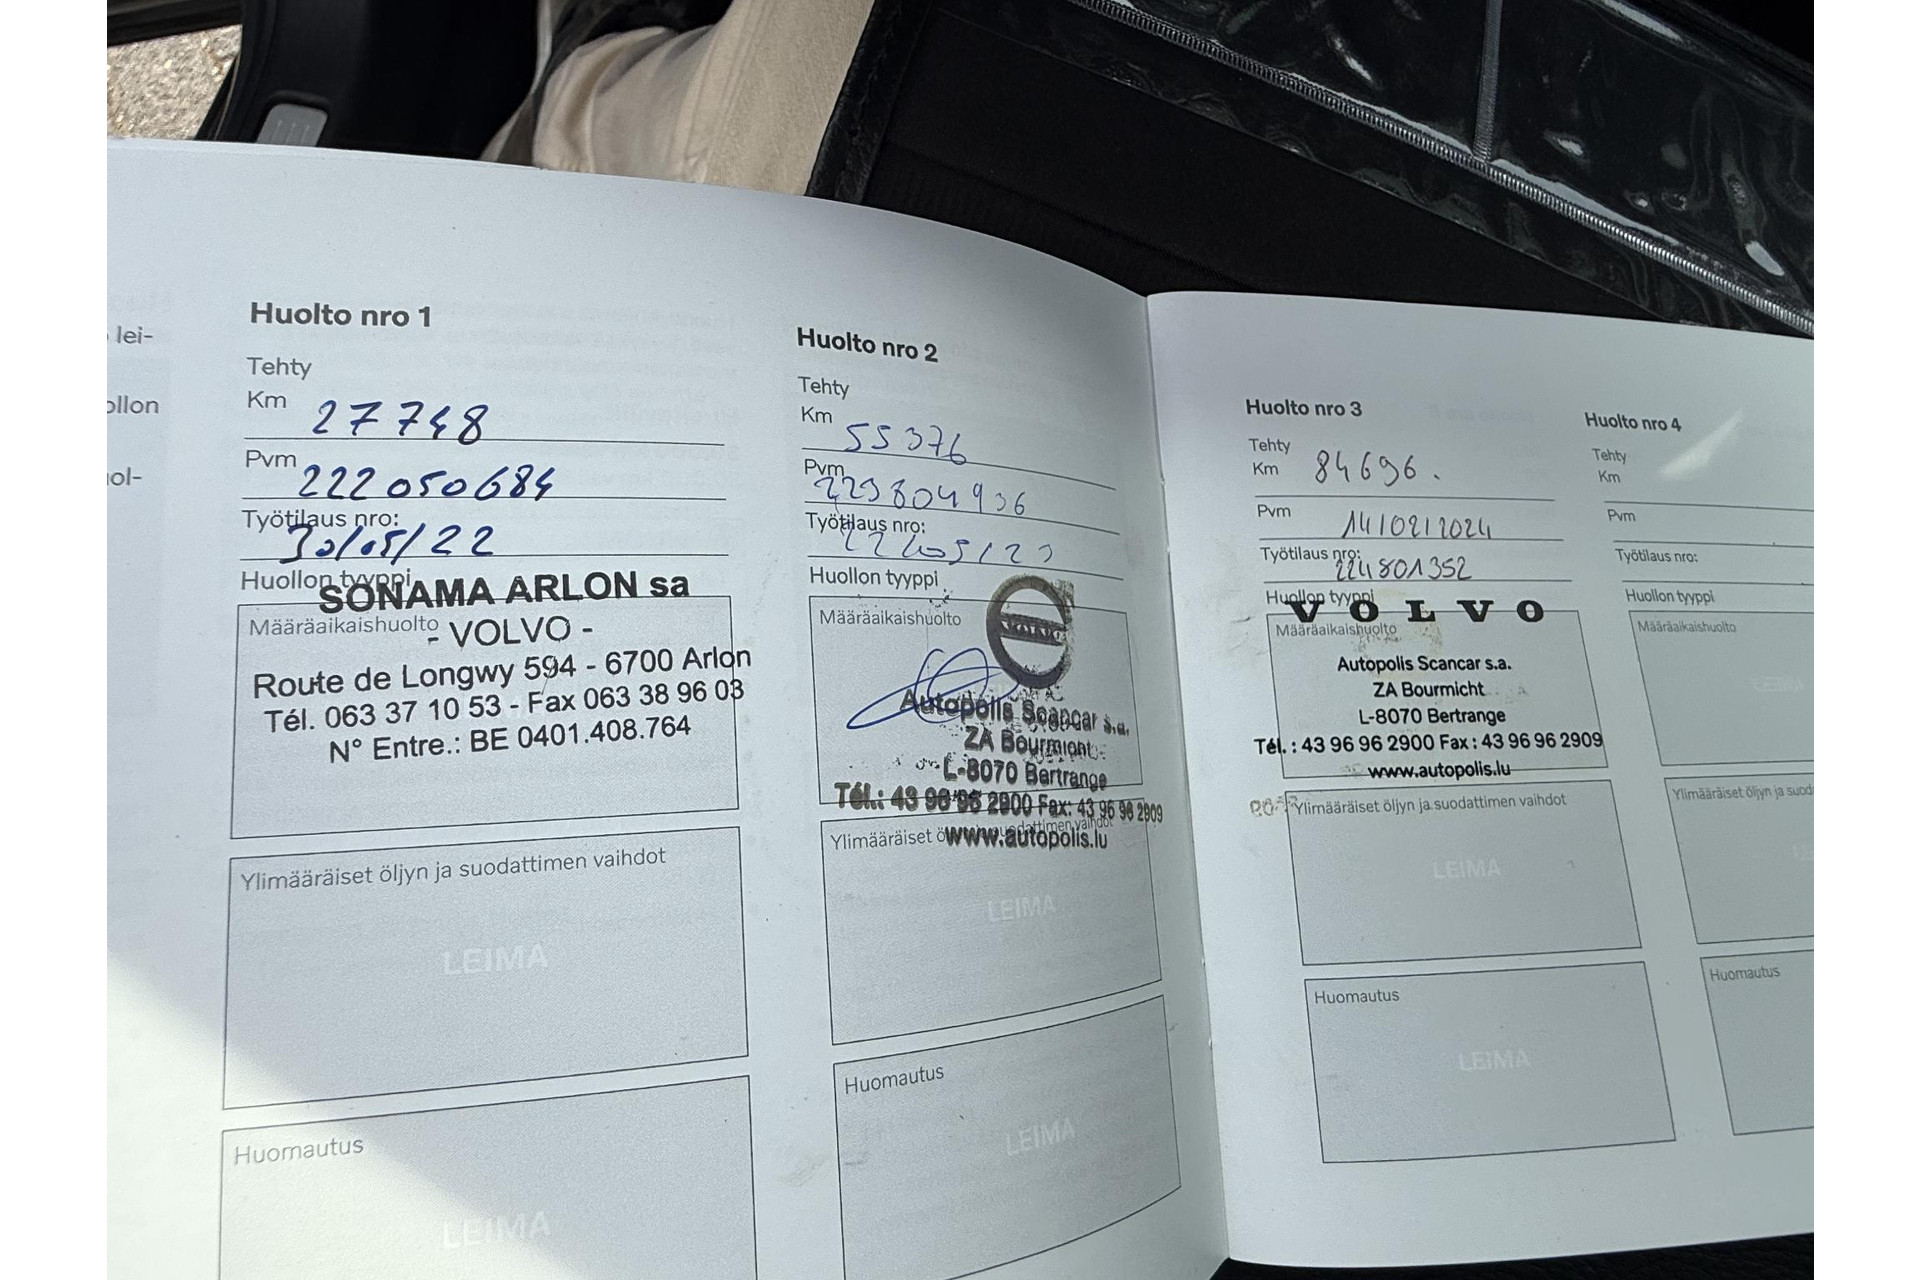 lei-
ollon
uol-
Huolto nro 1
Tehty
Km 27748
Pvm 222050684
Työtilaus nro: 30/05/22
Huollon tyyppi
SONAMA ARLON sa
Määräaikaishuolto
- VOLVO -
Route de Longwy 594 - 6700 Arlon
Tél. 063 37 10 53 - Fax 063 38 96 03
N° Entre.: BE 0401.408.764
Ylimääräiset öljyn ja suodattimen vaihdot
LEIMA
Huomautus
LEIMA
Huolto nro 2
Tehty
Km 55376
Pvm 223804936
Työtilaus nro:
Huollon tyyppi
Määräaikaishuolto
VOLVO
Autopolis Scancar s.a.
ZA Bourmicht
L-8070 Bertrange
Tél.: 43 96 96 2900 Fax: 43 96 96 2909
www.autopolis.lu
Ylimääräiset öljyn ja suodattimen vaihdot
LEIMA
Huomautus
LEIMA
Huolto nro 3
Tehty
Km 84696.
Pvm 14/02/2024
Työtilaus nro: 224801352
Huollon tyyppi
VOLVO
Määräaikaishuolto
Autopolis Scancar s.a.
ZA Bourmicht
L-8070 Bertrange
Tél.: 43 96 96 2900 Fax: 43 96 96 2909
www.autopolis.lu
Ylimääräiset öljyn ja suodattimen vaihdot
LEIMA
Huomautus
LEIMA
Huolto nro 4
Tehty
Km
Pvm
Työtilaus nro:
Huollon tyyppi
Määräaikaishuolto
LEIMA
Ylimääräiset öljyn ja suod
Huomautus